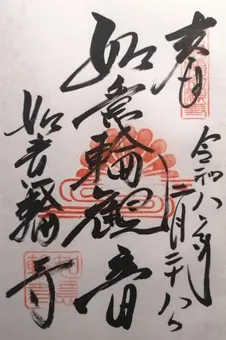 奉拝
令和八年二月二十八日
如意輪観音
如意輪寺